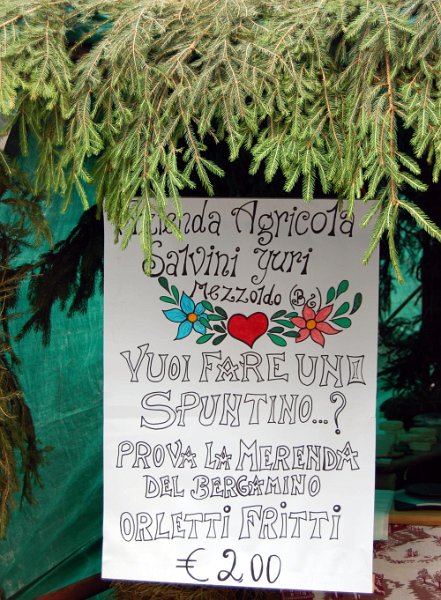 Azienda Agricola
Salvini Yuri
Mezzoldo (BG)
VUOI FARE UNO
SPUNTINO...?
PROVA LA MERENDA
DEL BERGAMINO
ORLETTI FRITTI
€ 2.00